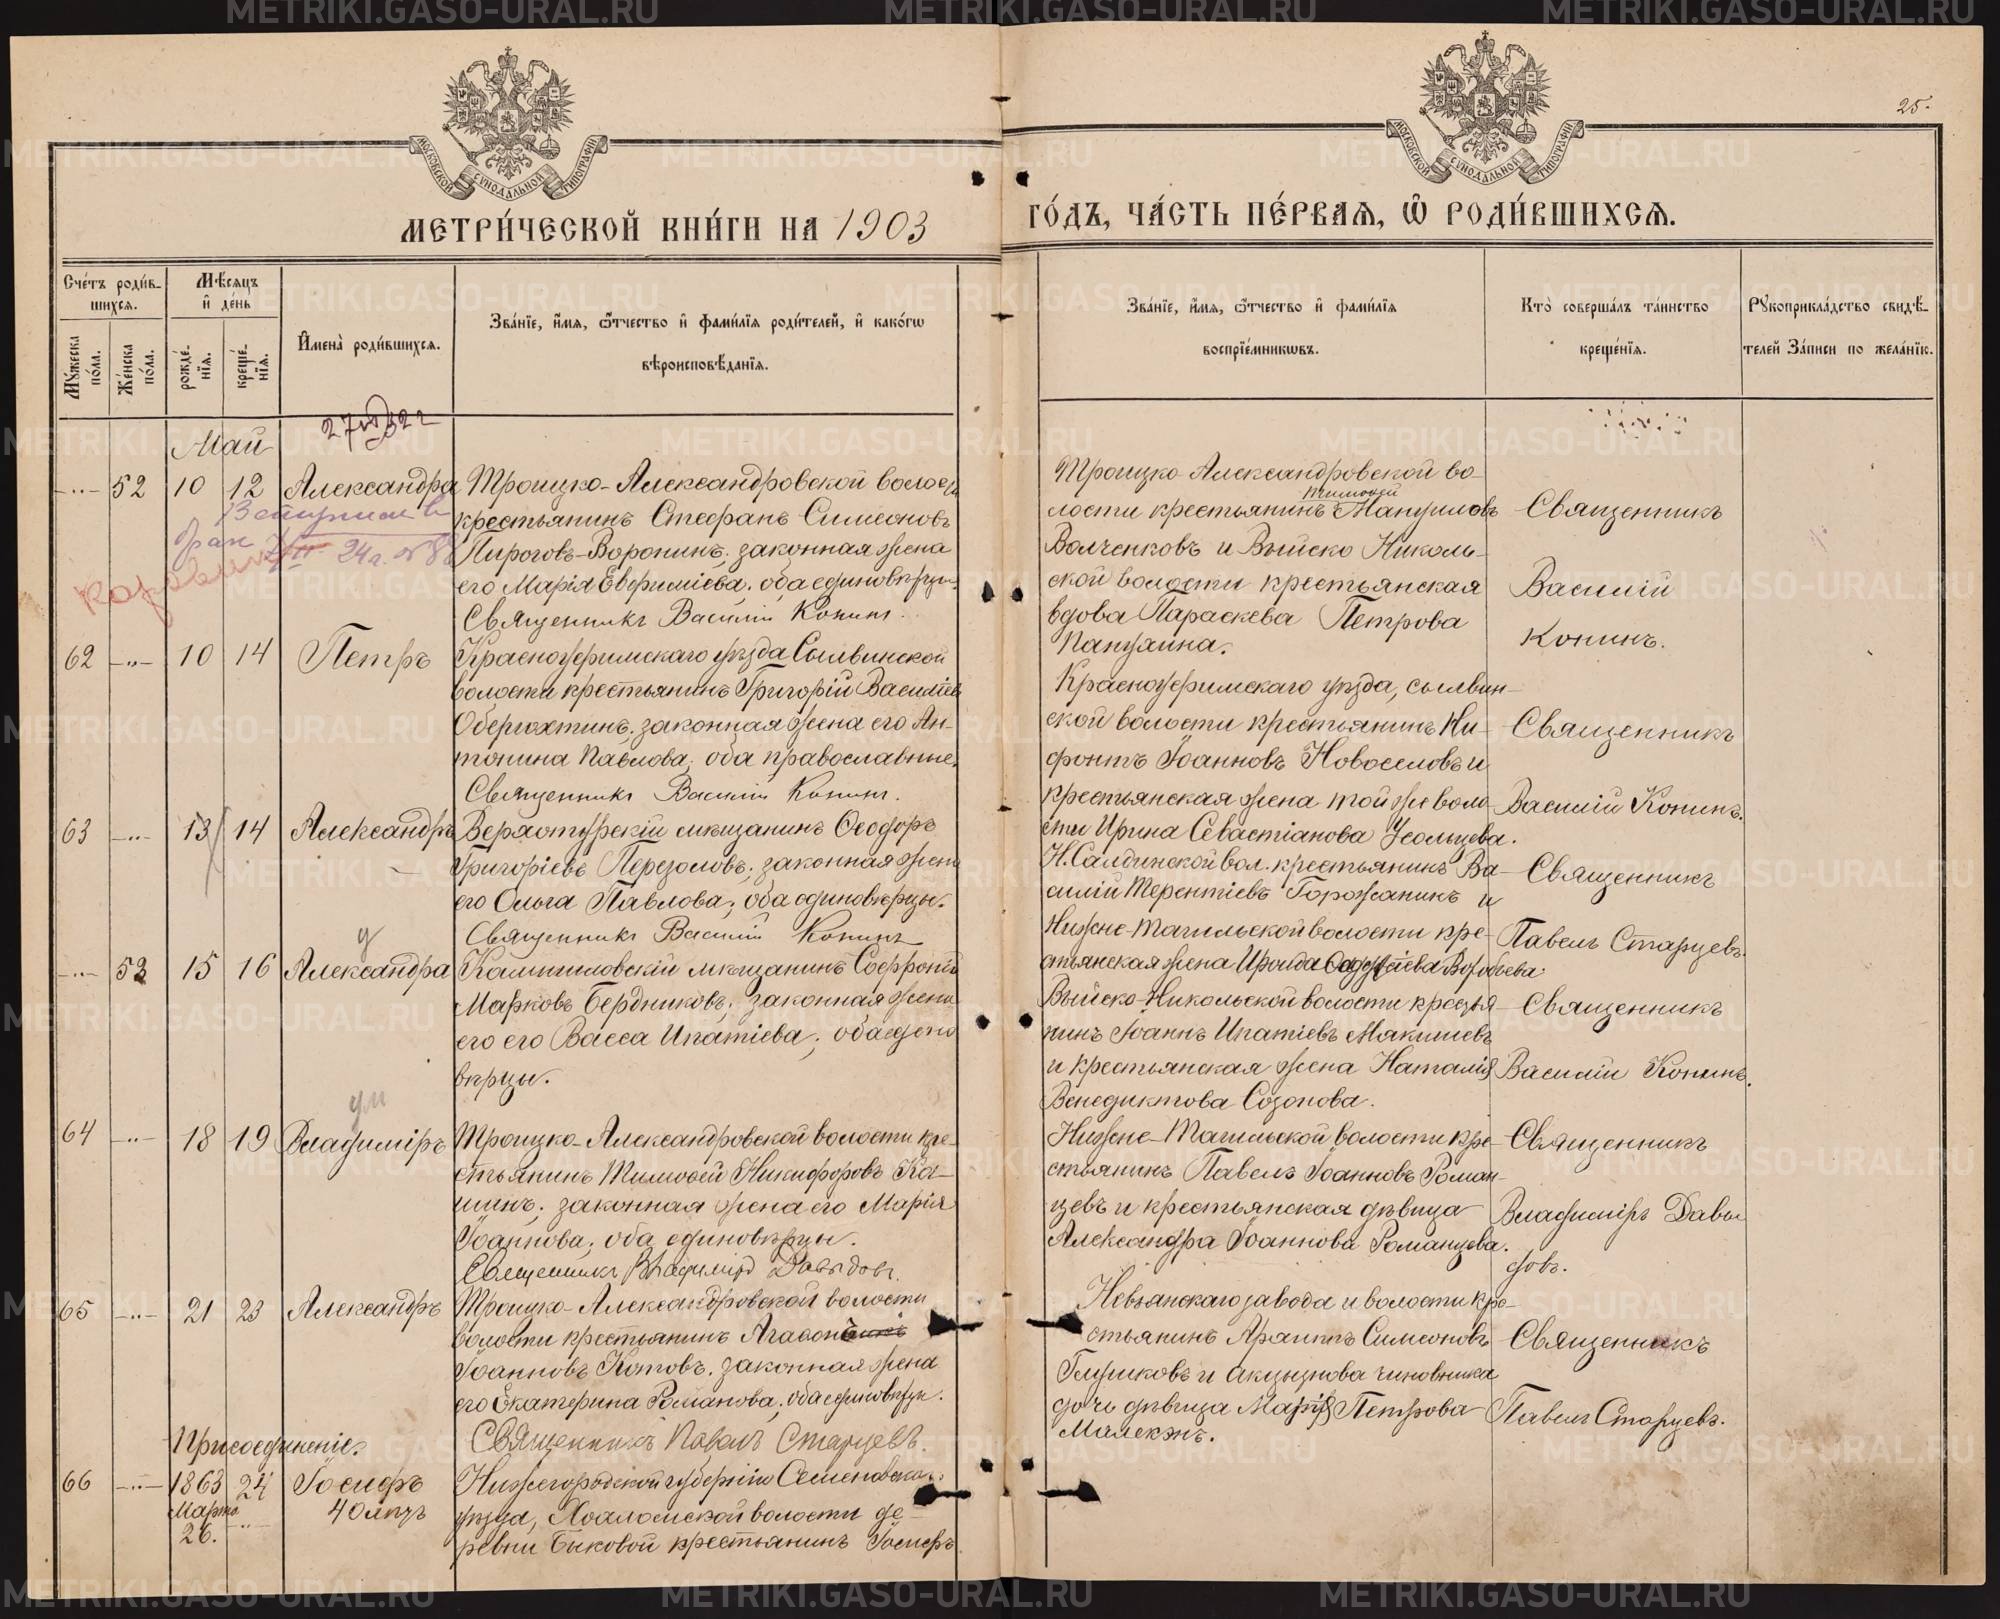 25.
МОСКОВСКОЙ СѴНОДАЛЬНОЙ ТИПОГРАФІИ
МОСКОВСКОЙ СѴНОДАЛЬНОЙ ТИПОГРАФІИ
МЕТРИ́ЧЕСКОЙ КНИ́ГИ НА 1903
ГО́ДЪ, ЧА́СТЬ ПЕ́РВАѦ, Ѽ РОДИ́ВШИХСѦ.
Сче́тъ роди́в-
шихсѧ.
Мꙋ́жеска по́ла.
Же́нска по́ла.
Мѣ́сѧцъ
и҆ де́нь
рожде́-
нїѧ.
креще́-
нїѧ.
И҆мена̀ роди́вшихсѧ.
Зва́нїе, и҆́мѧ, ѻ҆́тчество и҆ фами́лїѧ роди́телей, и҆ како́гѡ
вѣроисповѣ́данїѧ.
Зва́нїе, и҆́мѧ, ѻ҆́тчество и҆ фами́лїѧ
воспрїе́мникѡвъ.
Кто̀ соверша́лъ та́инство
креще́нїѧ.
Рꙋкоприкла́дство свидѣ́-
телей за́писи по жела́нїю.
Май
52 10 12 Александра
Троицко-Александровской волости
крестьянинъ Стефанъ Симеоновъ
Пироговъ-Воронинъ; законная жена
его Марія Евфиміева; оба единовѣрцы.
Священникъ Василій Конинъ.
Троицко-Александровской во-
лости крестьянинъ Тимофей Мануиловъ
Волченковъ и Выйско-Николь-
ской волости крестьянская
вдова Параскева Петрова
Священникъ
Василій
Конинъ.
62 -"- 10 14 Петръ
Красноуфимскаго уѣзда Сылвинской
волости крестьянинъ Григорій Василіев
законная жена его Ан-
тонина Павлова; оба православные.
Священникъ Василій Конинъ.
Красноуфимскаго уѣзда, сылвин-
ской волости крестьянинъ Ни-
фонтъ Іоанновъ Новоселовъ и
крестьянская жена той же воло-
сти Ирина Севастіанова Усольцева.
Священникъ
Василій Конинъ.
63 -"- 13 14 Александръ
Верхотурскій мѣщанинъ Ѳеодоръ
Григоріевъ Перезоловъ; законная жена
его Ольга Павлова; оба единовѣрцы.
Священникъ Василій Конинъ
Н. Салдинской вол. крестьянинъ Ва-
силій Терентіевъ Горожанинъ и
Нижне-Тагильской волости кре-
стьянская жена Воробьева.
Священникъ
Павелъ Старцевъ.
-"- 53 15 16 Александра
Камышловскій мѣщанинъ Софроній
Марковъ Бердниковъ; законная жена
его его Васса Ипатіева; оба едино
вѣрцы.
Выйско-Никольской волости крестья
нинъ Іоаннъ Ипатіевъ Мякишевъ
и крестьянская жена Наталія
Венедиктова Созонова.
Священникъ
Василій Конинъ.
ум
64 -"- 18 19 Владиміръ
Троицко-Александровской волости кре-
стьянинъ Тимоѳей Никифоровъ Ка-
шинъ; законная жена его Марія
Іоаннова; оба единовѣрцы.
Священникъ Владиміръ Давыдовъ.
Нижне-Тагильской волости кре-
стьянинъ Павелъ Іоанновъ Роман-
цевъ и крестьянская дѣвица
Александра Іоаннова Романцева.
Священникъ
Владиміръ Давы
довъ.
65 -"- 21 23 Александръ
Троицко-Александровской волости
волости крестьянинъ
Іоанновъ Котовъ; законная жена
его Екатерина Романова; оба единовѣрцы.
Священникъ Павелъ Старцевъ.
Невьянскаго завода и волости кре-
стьянинъ Архиппъ Симеоновъ
Глушковъ и чиновника
дочь дѣвица Марія Петрова
Священникъ
Павелъ Старцевъ.
Присоединеніе.
66 -"- 1863 24 Іосифъ
Марта 40 лѣтъ
26.
Нижегородской губерніи Семеновскаго
уѣзда, Хохломской волости де-
ревни Быковой крестьянинъ Іосифъ
METRIKI.GASO-URAL.RU